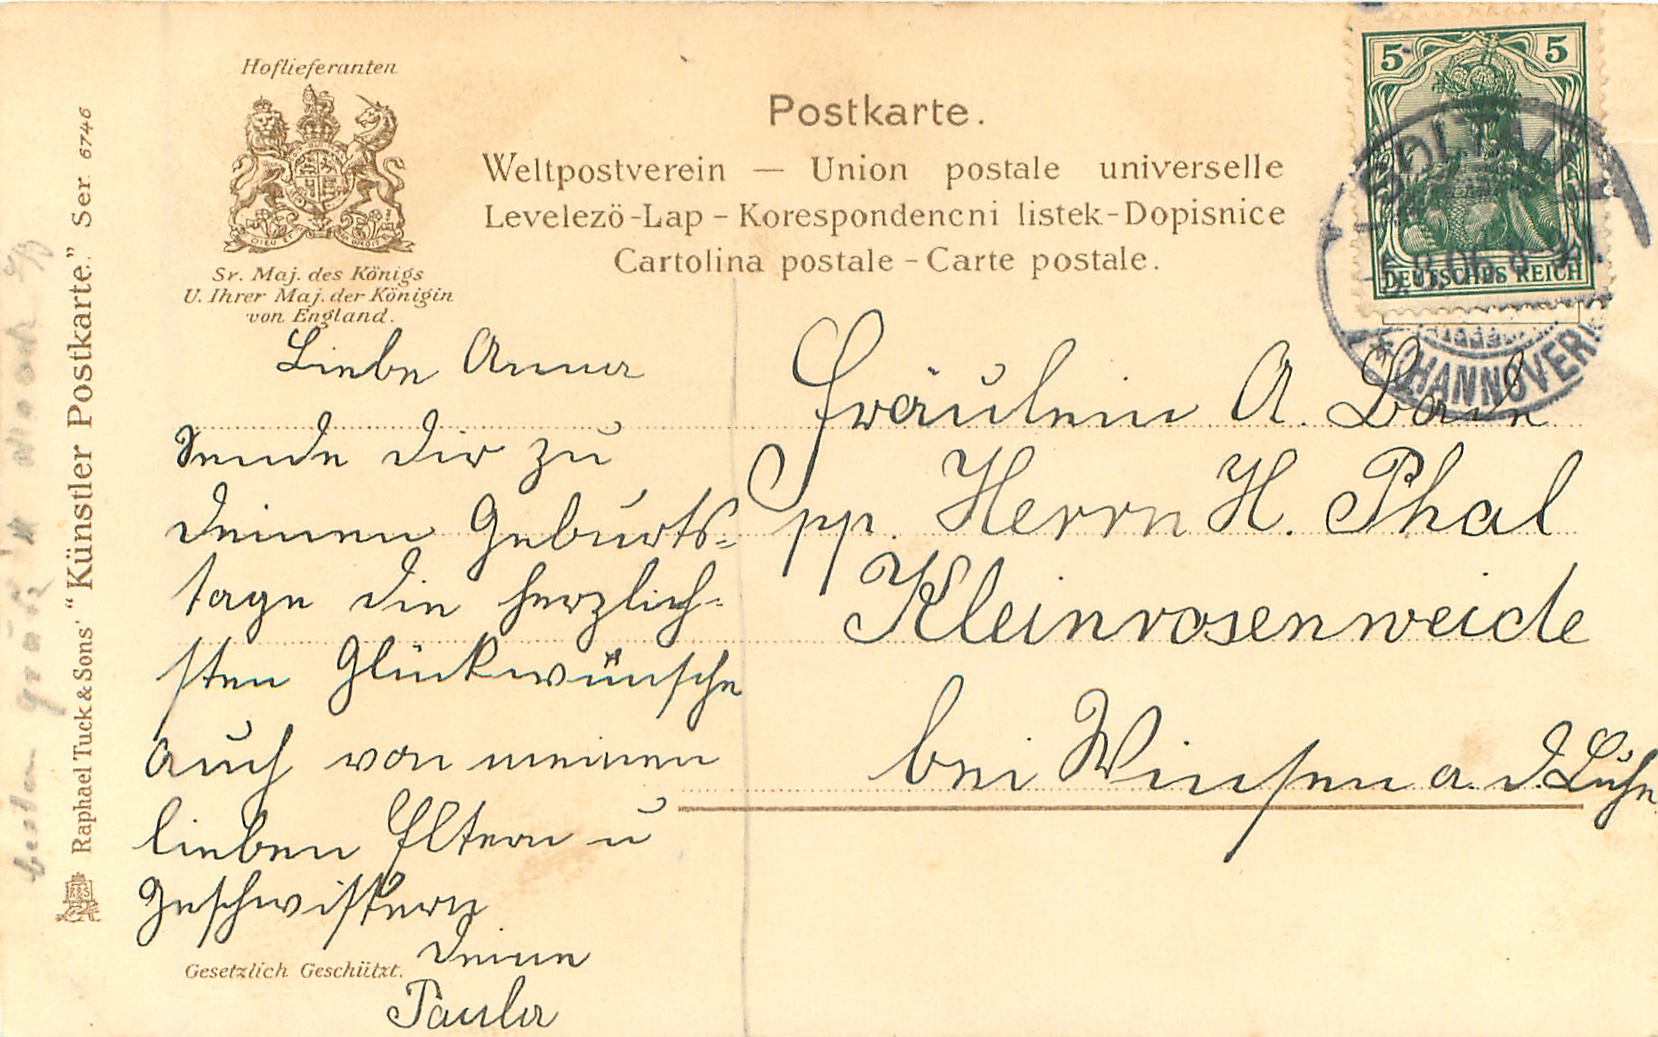 Hoflieferanten
DIEU ET MON DROIT
Sr. Maj. des Königs
U. Ihrer Maj. der Königin
von England.
Postkarte.
Weltpostverein — Union postale universelle
Levelezö-Lap – Korespondencni listek-Dopisnice
Cartolina postale – Carte postale.
5 5
DEUTSCHES REICH
SOLTAU
5.8.06.8
* HANNOVER
Liebe Anna
Sende dir zu
deinen Geburts=
tage die herzlich=
sten Glückwünsche
auch von meinen
lieben Eltern u
Geschwistern
deine
Paula
Fräulein A.
pp. Herrn H. Phal
Kleinrosenweide
bei Winsen a. d. Luhe
Raphael Tuck & Sons' "Künstler Postkarte." Ser. 6746
Gesetzlich Geschützt.